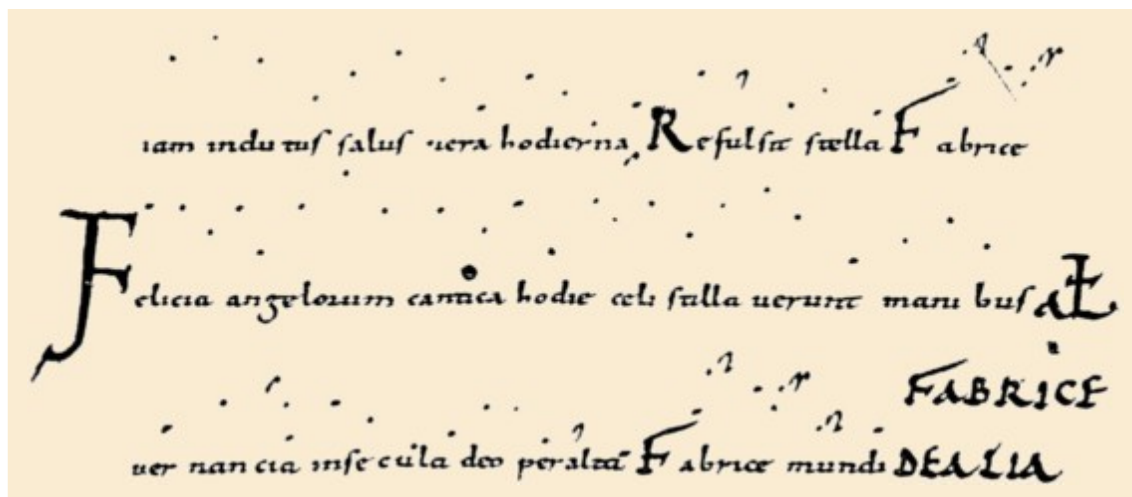 iam indu tus salus vera hodierna Refulsit stella Fabrice
Felicia angelorum cantica hodie celi stilla uerunt mani bus AŁ
FABRICE
uer nan cia inse cula deo per alta Fabrice mundi DE ALIA